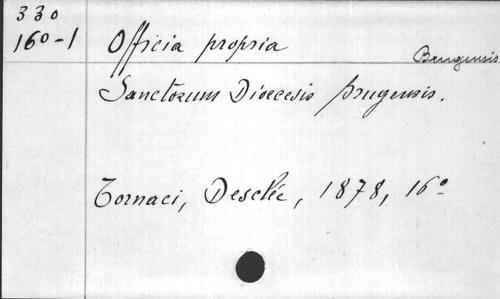 330
160-1
Officia propria
Brugensis
Sanctorum Dioecesis Brugensis.
Tornaci, Desclée, 1878, 16º